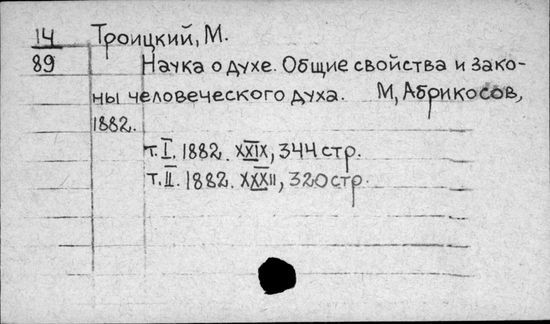 14 Троицкий, М.
89 Наука о духе. Общие свойства и зако-
ны человеческого духа. М, Абрикосов,
1882.
т. I. 1882. XXIX, 344 стр.
т. II. 1882. XXXII, 320 стр.